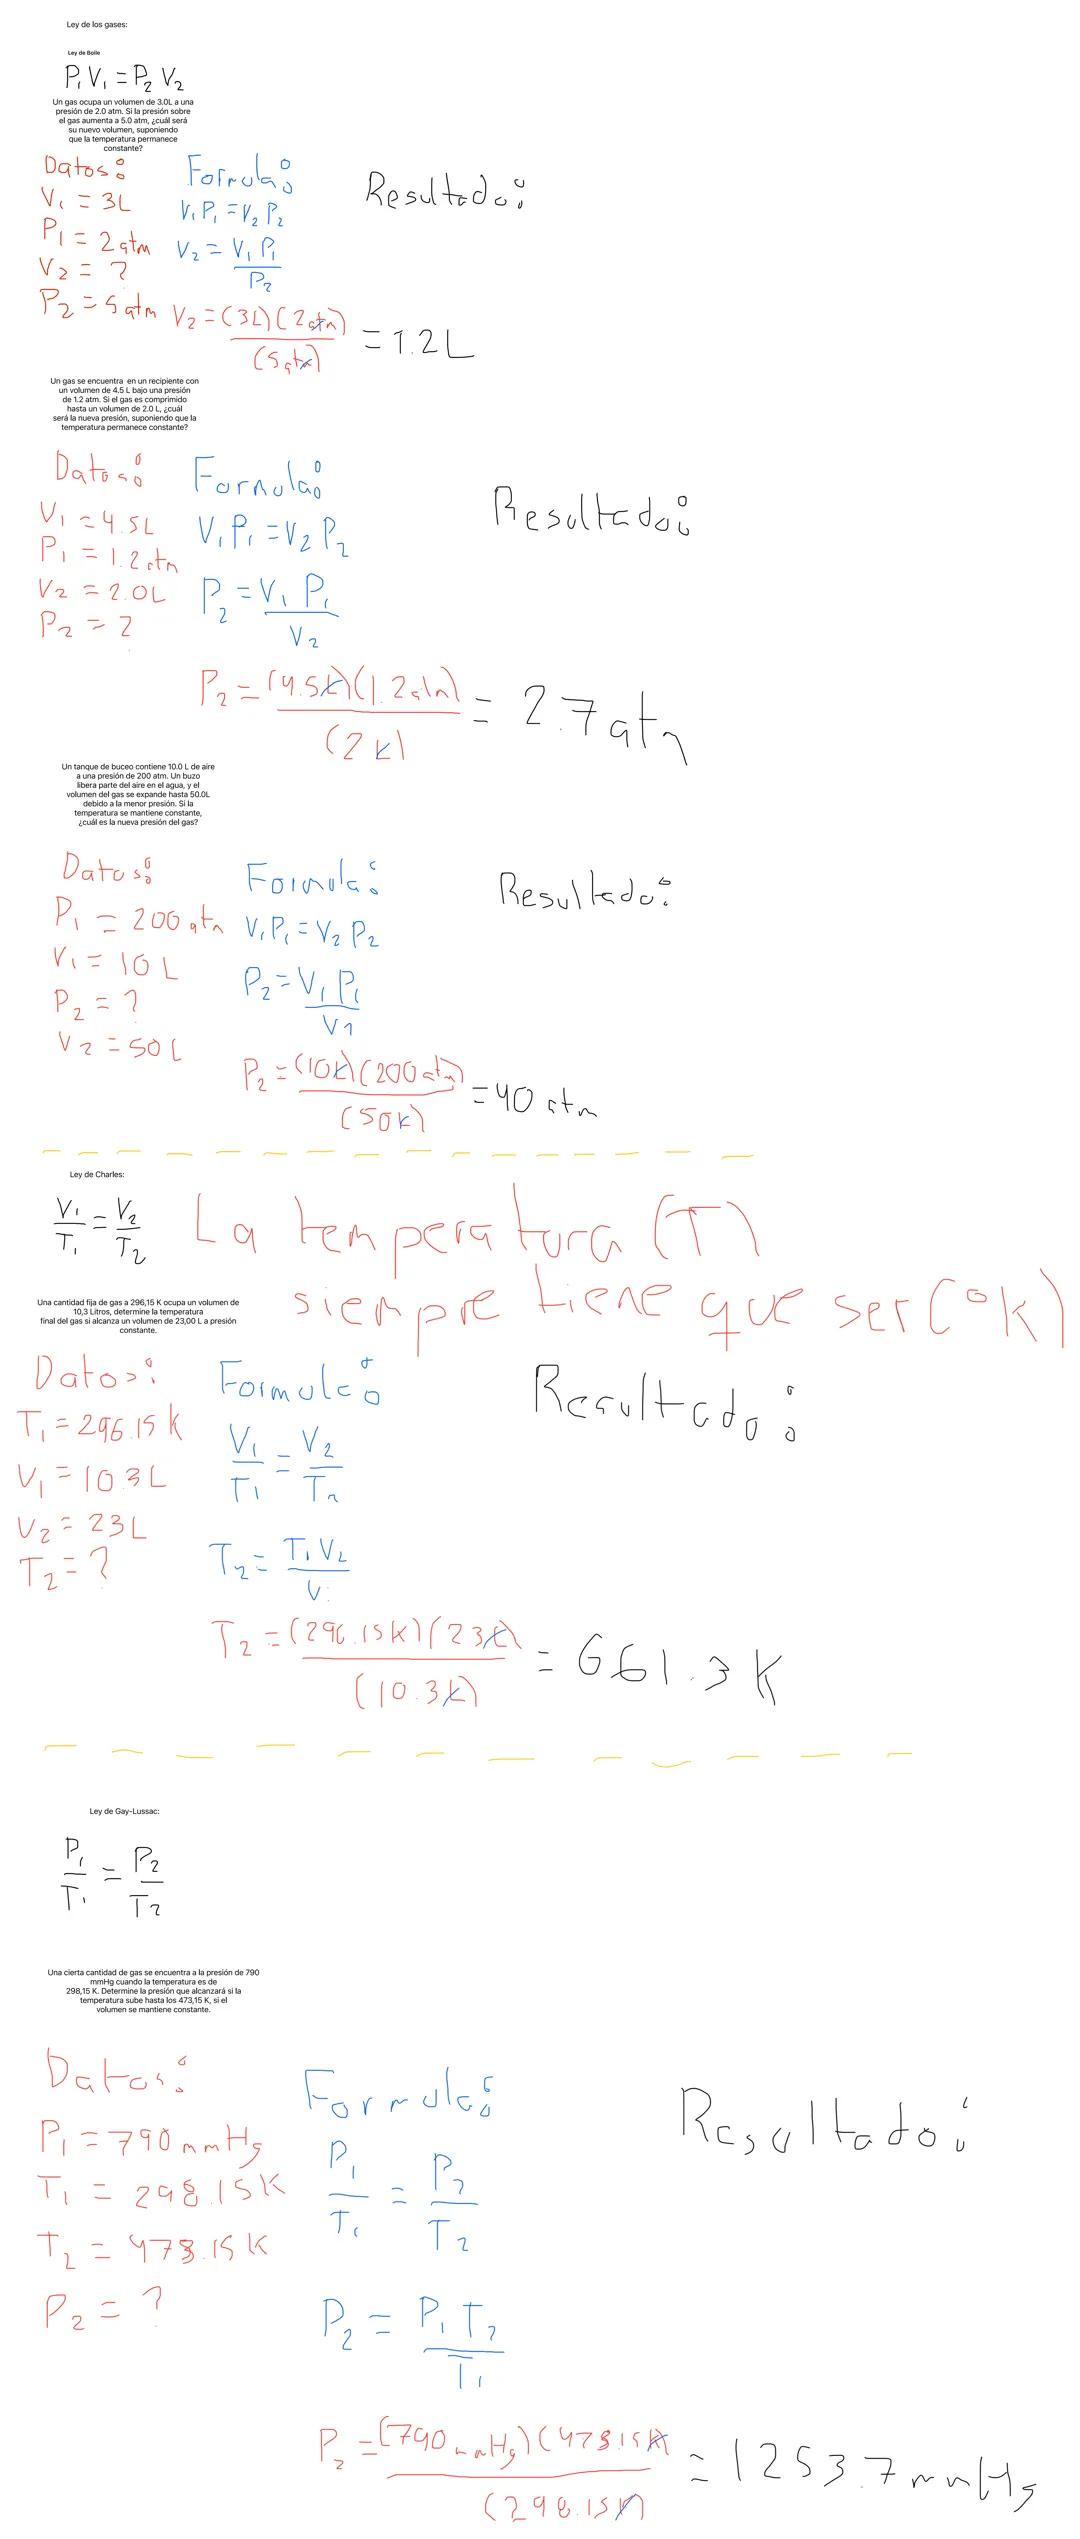 Ley de los gases:
Ley de Boile
P₁V₁ = P₂ V₂
Un gas ocupa un volumen de 3.0L a una
presión de 2.0 atm. Si la presión sobre
el gas aumenta a 5.0 atm, ¿cuál será
su nuevo volumen, suponiendo
que la temperatura permanece
constante?
Datos:
V₁ = 3L
P₁ = 2 atm
V₂ = ?
P₂ = 5 atm
Formula:
V₁P₁ = V₂ P₂
V₂ = V₁ P₁ / P₂
V₂ = (3L)(2atm) / (5atm)
Resultado:
= 1.2 L
Un gas se encuentra en un recipiente con
un volumen de 4.5 L bajo una presión
de 1.2 atm. Si el gas es comprimido
hasta un volumen de 2.0 L, ¿cuál
será la nueva presión, suponiendo que la
temperatura permanece constante?
Datos:
V₁ = 4.5L
P₁ = 1.2 atm
V₂ = 2.0L
P₂ = ?
Formula:
V₁P₁ = V₂ P₂
P₂ = V₁ P₁ / V₂
P₂ = (4.5L)(1.2atm) / (2L)
Resultado:
= 2.7 atm
Un tanque de buceo contiene 10.0 L de aire
a una presión de 200 atm. Un buzo
libera parte del aire en el agua, y el
volumen del gas se expande hasta 50.0L
debido a la menor presión. Si la
temperatura se mantiene constante,
¿cuál es la nueva presión del gas?
Datos:
P₁ = 200 atm
V₁ = 10 L
P₂ = ?
V₂ = 50 L
Formula:
V₁P₁ = V₂ P₂
P₂ = V₁ P₁ / V₂
P₂ = (10L)(200 atm) / (50L)
Resultado:
= 40 atm
Ley de Charles:
V₁ / T₁ = V₂ / T₂
La temperatura (T)
siempre tiene que ser (°K)
Una cantidad fija de gas a 296,15 K ocupa un volumen de
10,3 Litros, determine la temperatura
final del gas si alcanza un volumen de 23,00 L a presión
constante.
Datos:
T₁ = 296.15 K
V₁ = 10.3 L
V₂ = 23 L
T₂ = ?
Formula:
V₁ / T₁ = V₂ / T₂
T₂ = T₁ V₂ / V₁
T₂ = (296.15K)(23L) / (10.3L)
Resultado:
= 661.3 K
Ley de Gay-Lussac:
P₁ / T₁ = P₂ / T₂
Una cierta cantidad de gas se encuentra a la presión de 790
mmHg cuando la temperatura es de
298,15 K. Determine la presión que alcanzará si la
temperatura sube hasta los 473,15 K, si el
volumen se mantiene constante.
Datos:
P₁ = 790 mmHg
T₁ = 298.15 K
T₂ = 473.15 K
P₂ = ?
Formula:
P₁ / T₁ = P₂ / T₂
P₂ = P₁ T₂ / T₁
P₂ = (790 mmHg)(473.15K) / (298.15K)
Resultado:
= 1253.7 mmHg